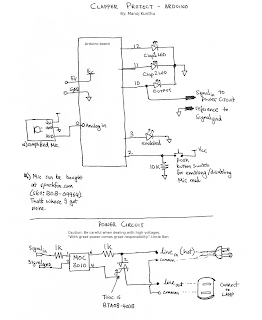 CLAPPER PROJECT - ARDUINO
By: Manoj Kunthu
Arduino board
12
Clap1 LED
11
Clap2 LED
10
OUTPUT
Signal to
Power Circuit
Reference to
Signal gnd
5V
Vcc
GND
Analog in
a) Amplified Mic
3
enabled
2
Vcc
10K
push
button Switch
for enabling/disabling
Mic read
a) Mic can be bought
at sparkfun.com
(SKU: BOB-09964)
That's where I got
mine.
POWER CIRCUIT
Caution: Be careful when dealing with high voltages.
"With great power comes great responsibility" Uncle Ben
Signal in
1K
MOC
3010
1K
line (hot)
common
Signal gnd
line out
common
Connect to
Lamp
TRIAC is
BTA08-600B